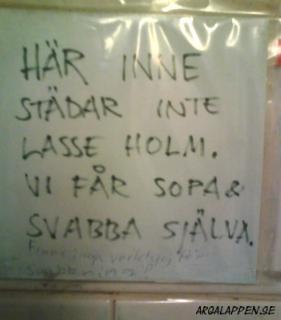 HÄR INNE
STÄDAR INTE
LASSE HOLM.
VI FÅR SOPA &
SVABBA SJÄLVA.
Finns inga
svabbning?
ARGALAPPEN.SE